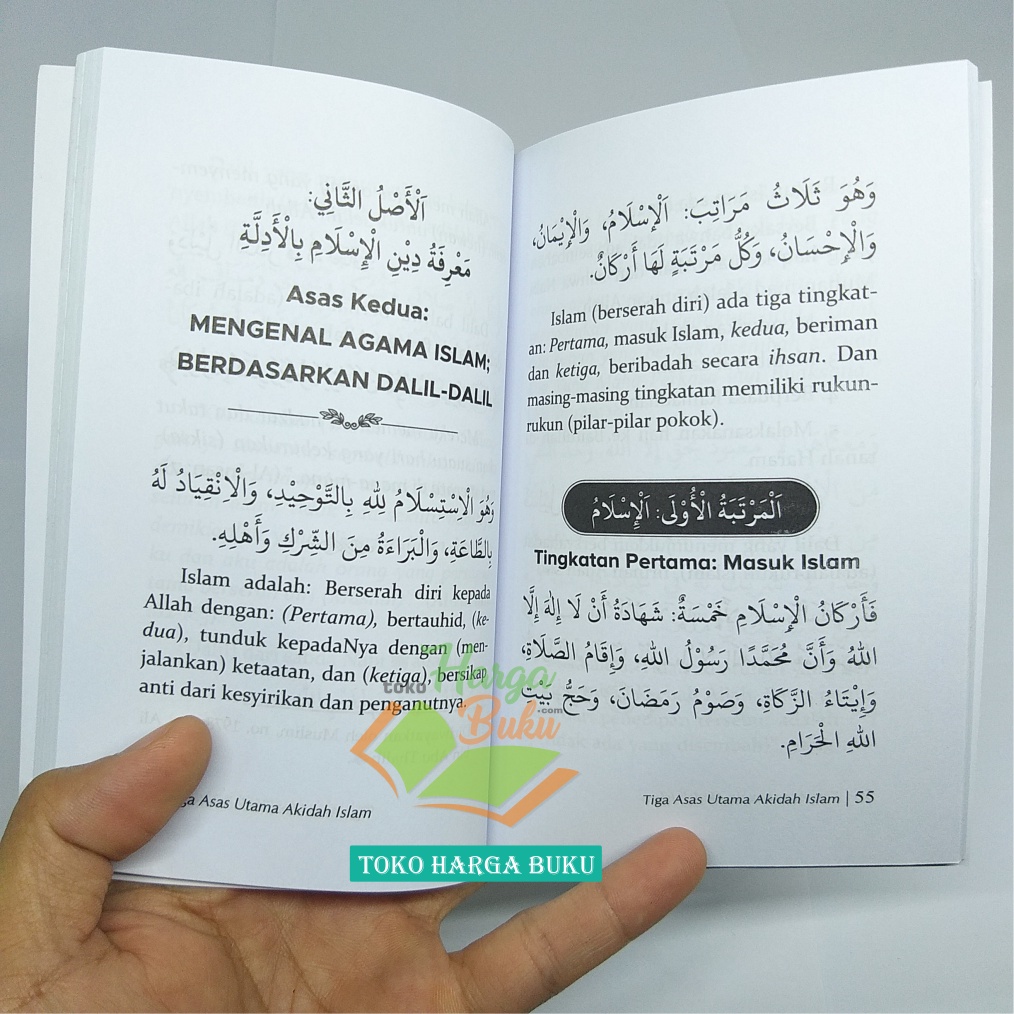 اَلْأَصْلُ الثَّانِي:
مَعْرِفَةُ دِيْنِ الْإِسْلَامِ بِالْأَدِلَّةِ
Asas Kedua:
MENGENAL AGAMA ISLAM;
BERDASARKAN DALIL-DALIL
وَهُوَ الْاِسْتِسْلَامُ لِلّٰهِ بِالتَّوْحِيْدِ، وَالْاِنْقِيَادُ لَهُ
بِالطَّاعَةِ، وَالْبَرَاءَةُ مِنَ الشِّرْكِ وَأَهْلِهِ.
Islam adalah: Berserah diri kepada
Allah dengan: (Pertama), bertauhid, (ke-
dua), tunduk kepadaNya dengan (men-
jalankan) ketaatan, dan (ketiga), bersikap
anti dari kesyirikan dan penganutnya.
Asas Utama Akidah Islam
وَهُوَ ثَلَاثُ مَرَاتِبَ: اَلْإِسْلَامُ، وَالْإِيْمَانُ،
وَالْإِحْسَانُ، وَكُلُّ مَرْتَبَةٍ لَهَا أَرْكَانٌ.
Islam (berserah diri) ada tiga tingkat-
an: Pertama, masuk Islam, kedua, beriman
dan ketiga, beribadah secara ihsan. Dan
masing-masing tingkatan memiliki rukun-
rukun (pilar-pilar pokok).
اَلْمَرْتَبَةُ الْأُوْلَى: اَلْإِسْلَامُ
Tingkatan Pertama: Masuk Islam
فَأَرْكَانُ الْإِسْلَامِ خَمْسَةٌ: شَهَادَةُ أَنْ لَا إِلٰهَ إِلَّا
اللهُ وَأَنَّ مُحَمَّدًا رَسُوْلُ اللهِ، وَإِقَامُ الصَّلَاةِ،
وَإِيْتَاءُ الزَّكَاةِ، وَصَوْمُ رَمَضَانَ، وَحَجُّ بَيْتِ
اللهِ الْحَرَامِ.
Tiga Asas Utama Akidah Islam | 55
toko Harga
Buku .com
TOKO HARGA BUKU